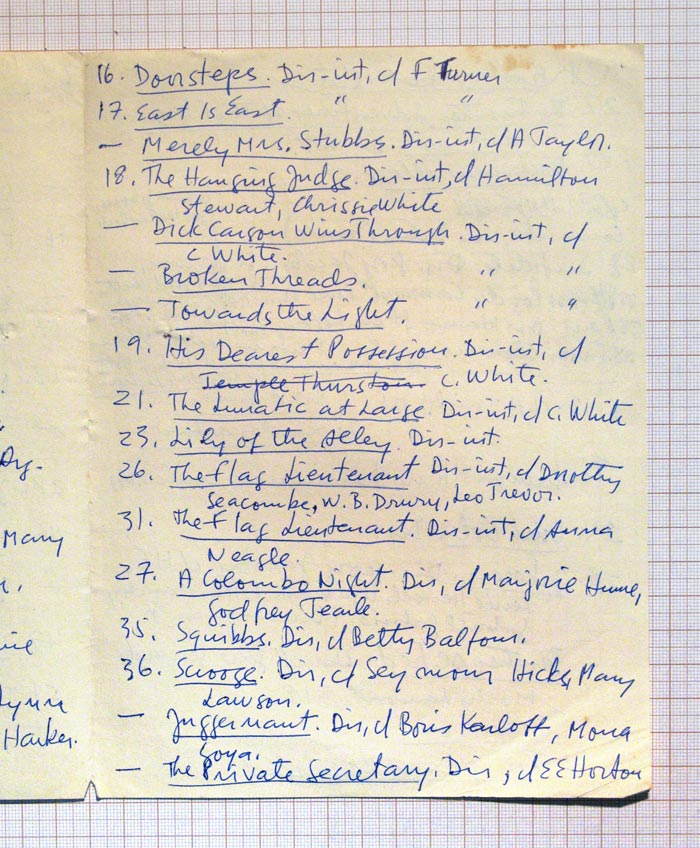 16. Doorsteps. Dir-int, c/ F Turner
17. East Is East. " "
— Merely Mrs. Stubbs. Dir-int, c/ A Taylor.
18. The Hanging Judge. Dir-int, c/ Hamilton
Stewart, Chrissie White
— Dick Carson Wins Through. Dir-int, c/
C White.
— Broken Threads. " "
— Towards the Light. " "
19. His Dearest Possession. Dir-int, c/
Temple Thurston C. White.
21. The Lunatic at Large. Dir-int, c/ C. White
23. Lily of the Alley. Dir-int.
26. The Flag Lieutenant. Dir-int, c/ Dorothy
Seacombe, W.B. Drury, Leo Trevor.
31. The Flag Lieutenant. Dir-int, c/ Anna
Neagle
27. A Colombo Night. Dir, c/ Marjorie Hume,
Godfrey Tearle.
35. Squibbs. Dir, c/ Betty Balfour.
36. Scrooge. Dir, c/ Seymour Hicks, Mary
Lawson.
— Juggernaut. Dir, c/ Boris Karloff, Mona
Goya.
— The Private Secretary. Dir, c/ E E Horton
Mary
Harker.